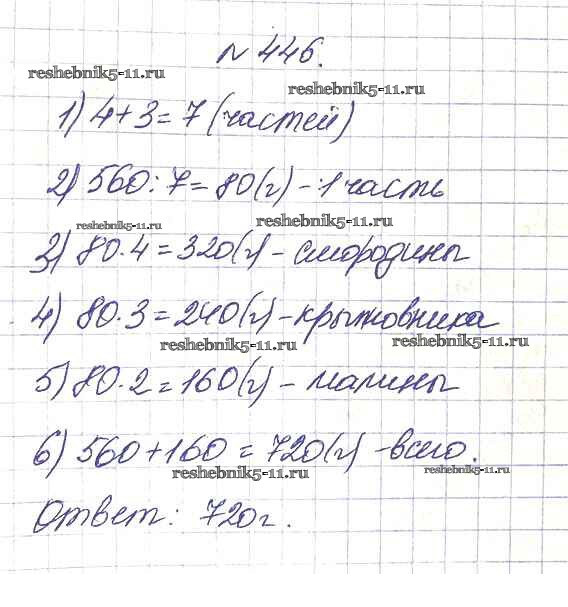 N 446.
reshebnik5-11.ru
reshebnik5-11.ru
1) 4+3=7 (частей)
2) 560:7=80(г) - 1 часть
reshebnik5-11.ru
reshebnik5-11.ru
3) 80·4=320(г) - смородины
4) 80·3=240(г) - крыжовника
reshebnik5-11.ru
reshebnik5-11.ru
5) 80·2=160(г) - малины
6) 560+160=720(г) - всего.
reshebnik5-11.ru
reshebnik5-11.ru
Ответ: 720г.